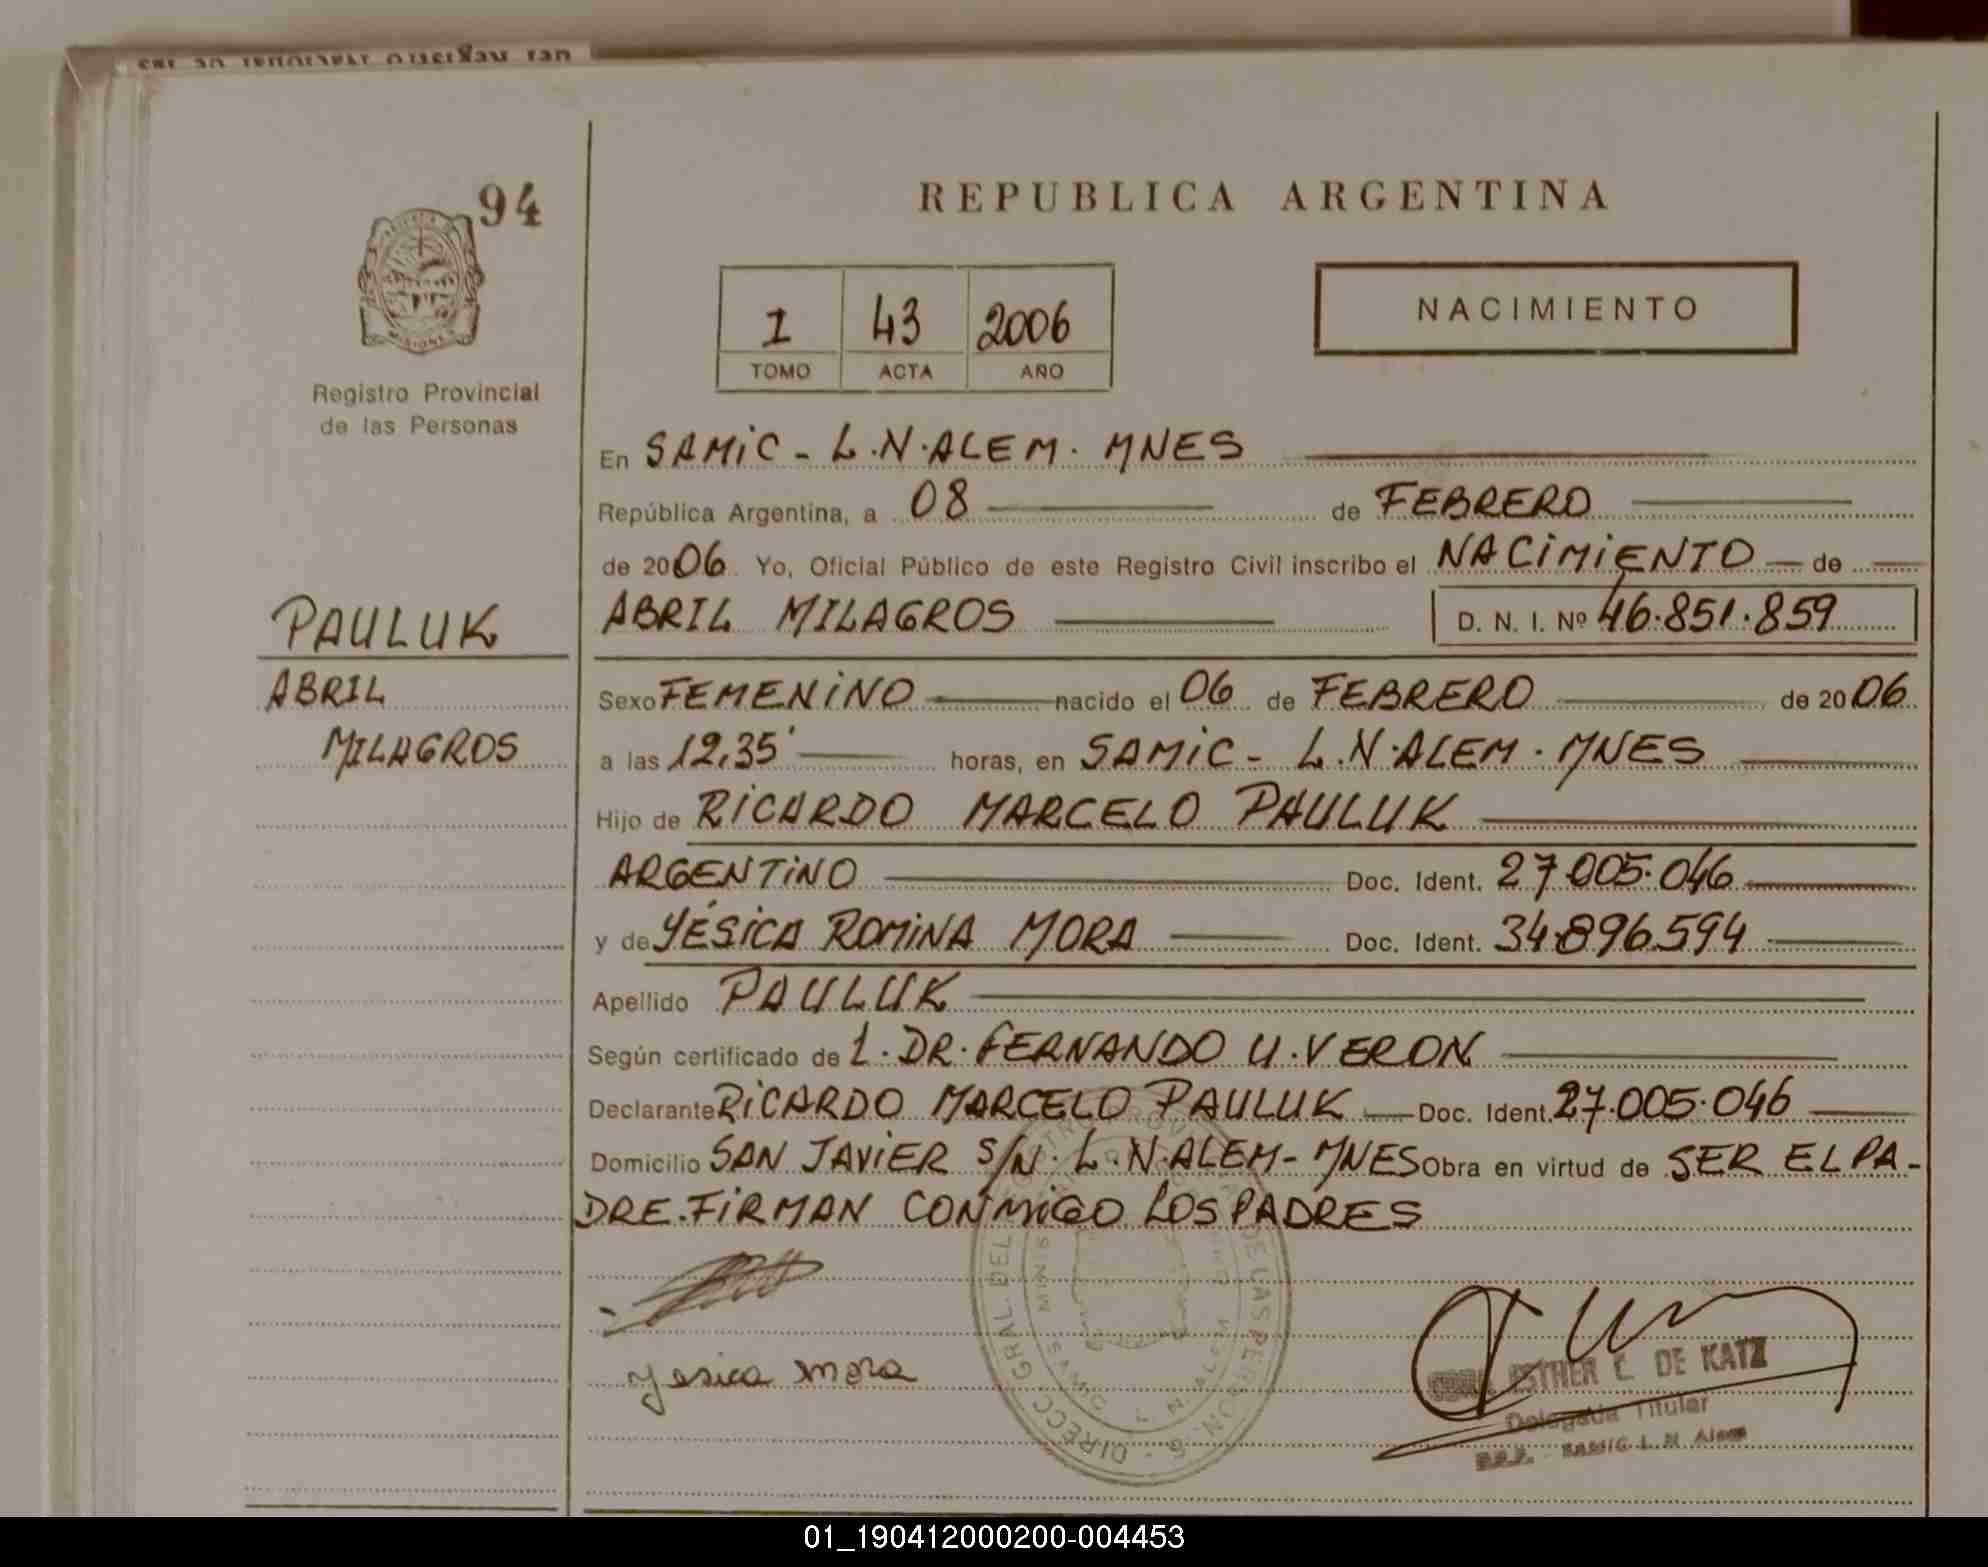 94
REPUBLICA ARGENTINA
1 43 2006
TOMO ACTA AÑO
NACIMIENTO
MISIONES
Registro Provincial
de las Personas
En SAMIC - L.N.ALEM. MNES
República Argentina, a 08 de FEBRERO
de 2006 Yo, Oficial Público de este Registro Civil inscribo el NACIMIENTO de
ABRIL MILAGROS D. N. I. Nº 46.851.859
PAULUK
ABRIL
MILAGROS
Sexo FEMENINO nacido el 06 de FEBRERO de 2006
a las 12,35' horas, en SAMIC - L.N.ALEM. MNES
Hijo de RICARDO MARCELO PAULUK
ARGENTINO Doc. Ident. 27.005.046
y de YÉSICA ROMINA MORA Doc. Ident. 34.896.594
Apellido PAULUK
Según certificado de 1. DR. FERNANDO U. VERON
Declarante RICARDO MARCELO PAULUK Doc. Ident. 27.005.046
Domicilio SAN JAVIER S/N. L.N.ALEM - MNES Obra en virtud de SER EL PA-
DRE. FIRMAN CONMIGO LOS PADRES
Yesica Mora
DIRECC. GRAL. DEL DE LAS PERSON.
L. N. ALEM
ESTHER C. DE KATZ
Delegada Titular
SAMIC L. N. Alem
01_190412000200-004453